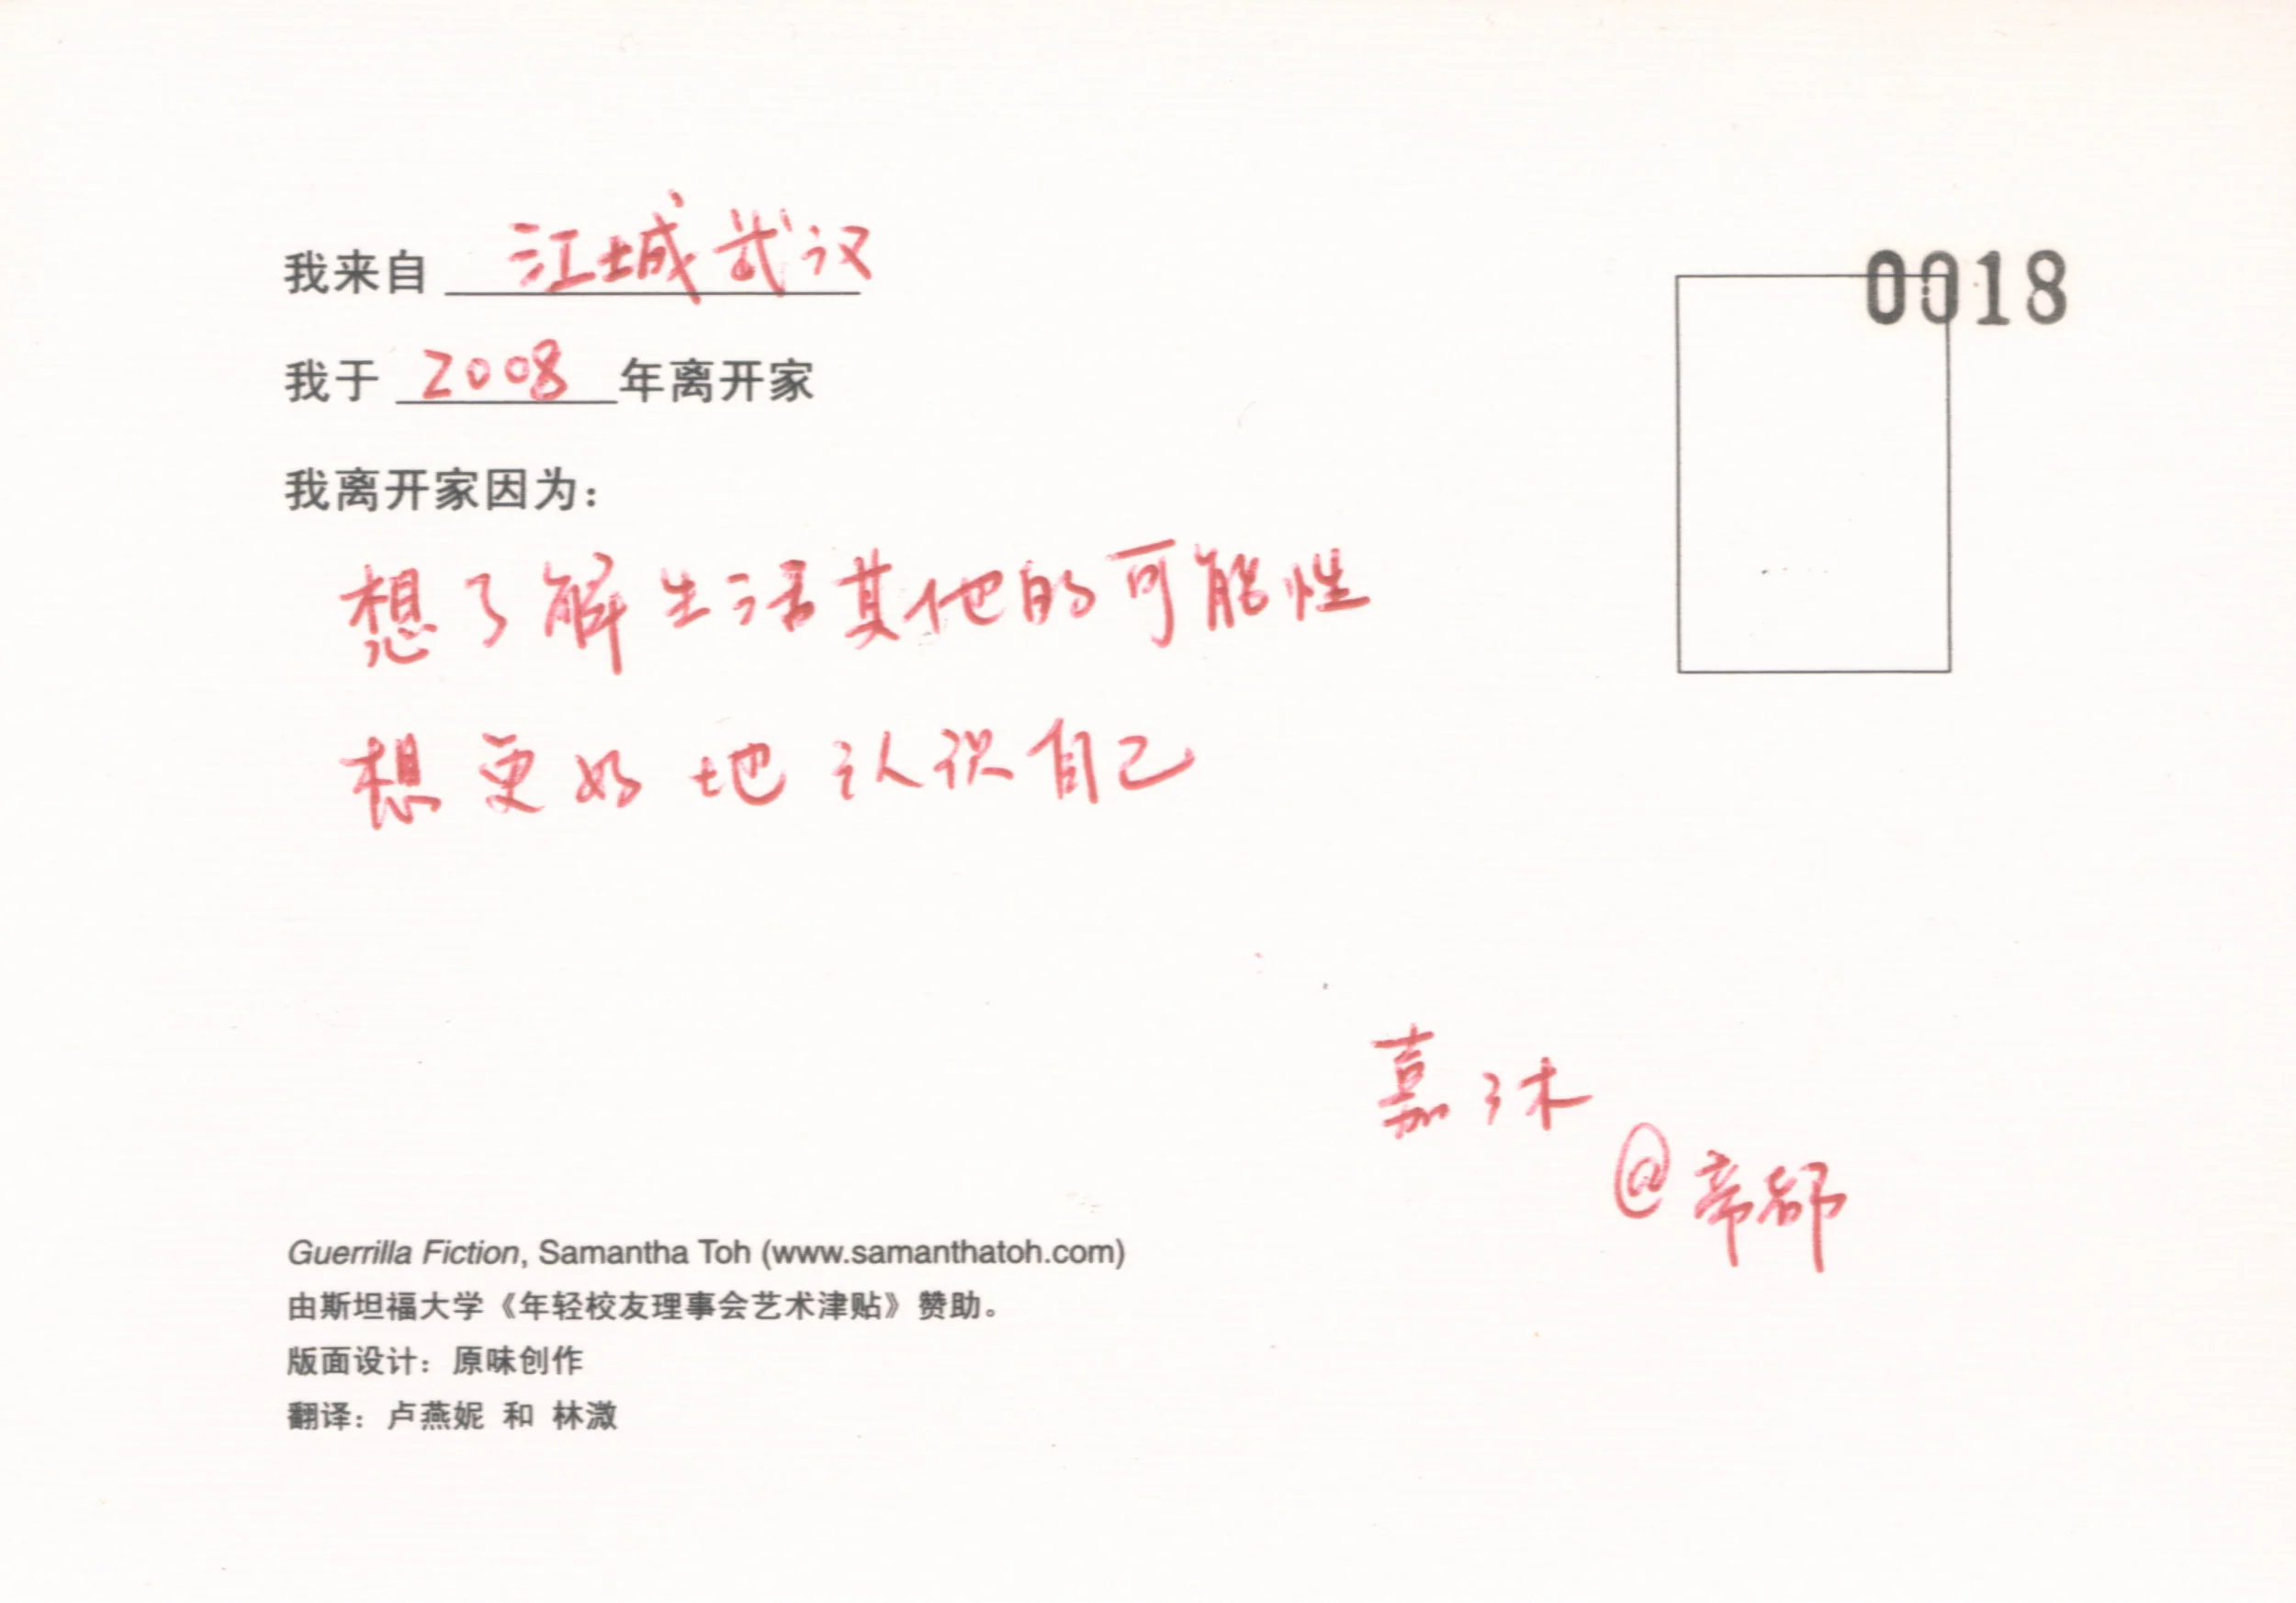 我来自 江城武汉
0018
我于 2008 年离开家
我离开家因为：
想了解生活其他的可能性
想更好地认识自己
嘉沐
@帝都
Guerrilla Fiction, Samantha Toh (www.samanthatoh.com)
由斯坦福大学《年轻校友理事会艺术津贴》赞助。
版面设计：原味创作
翻译：卢燕妮 和 林溦